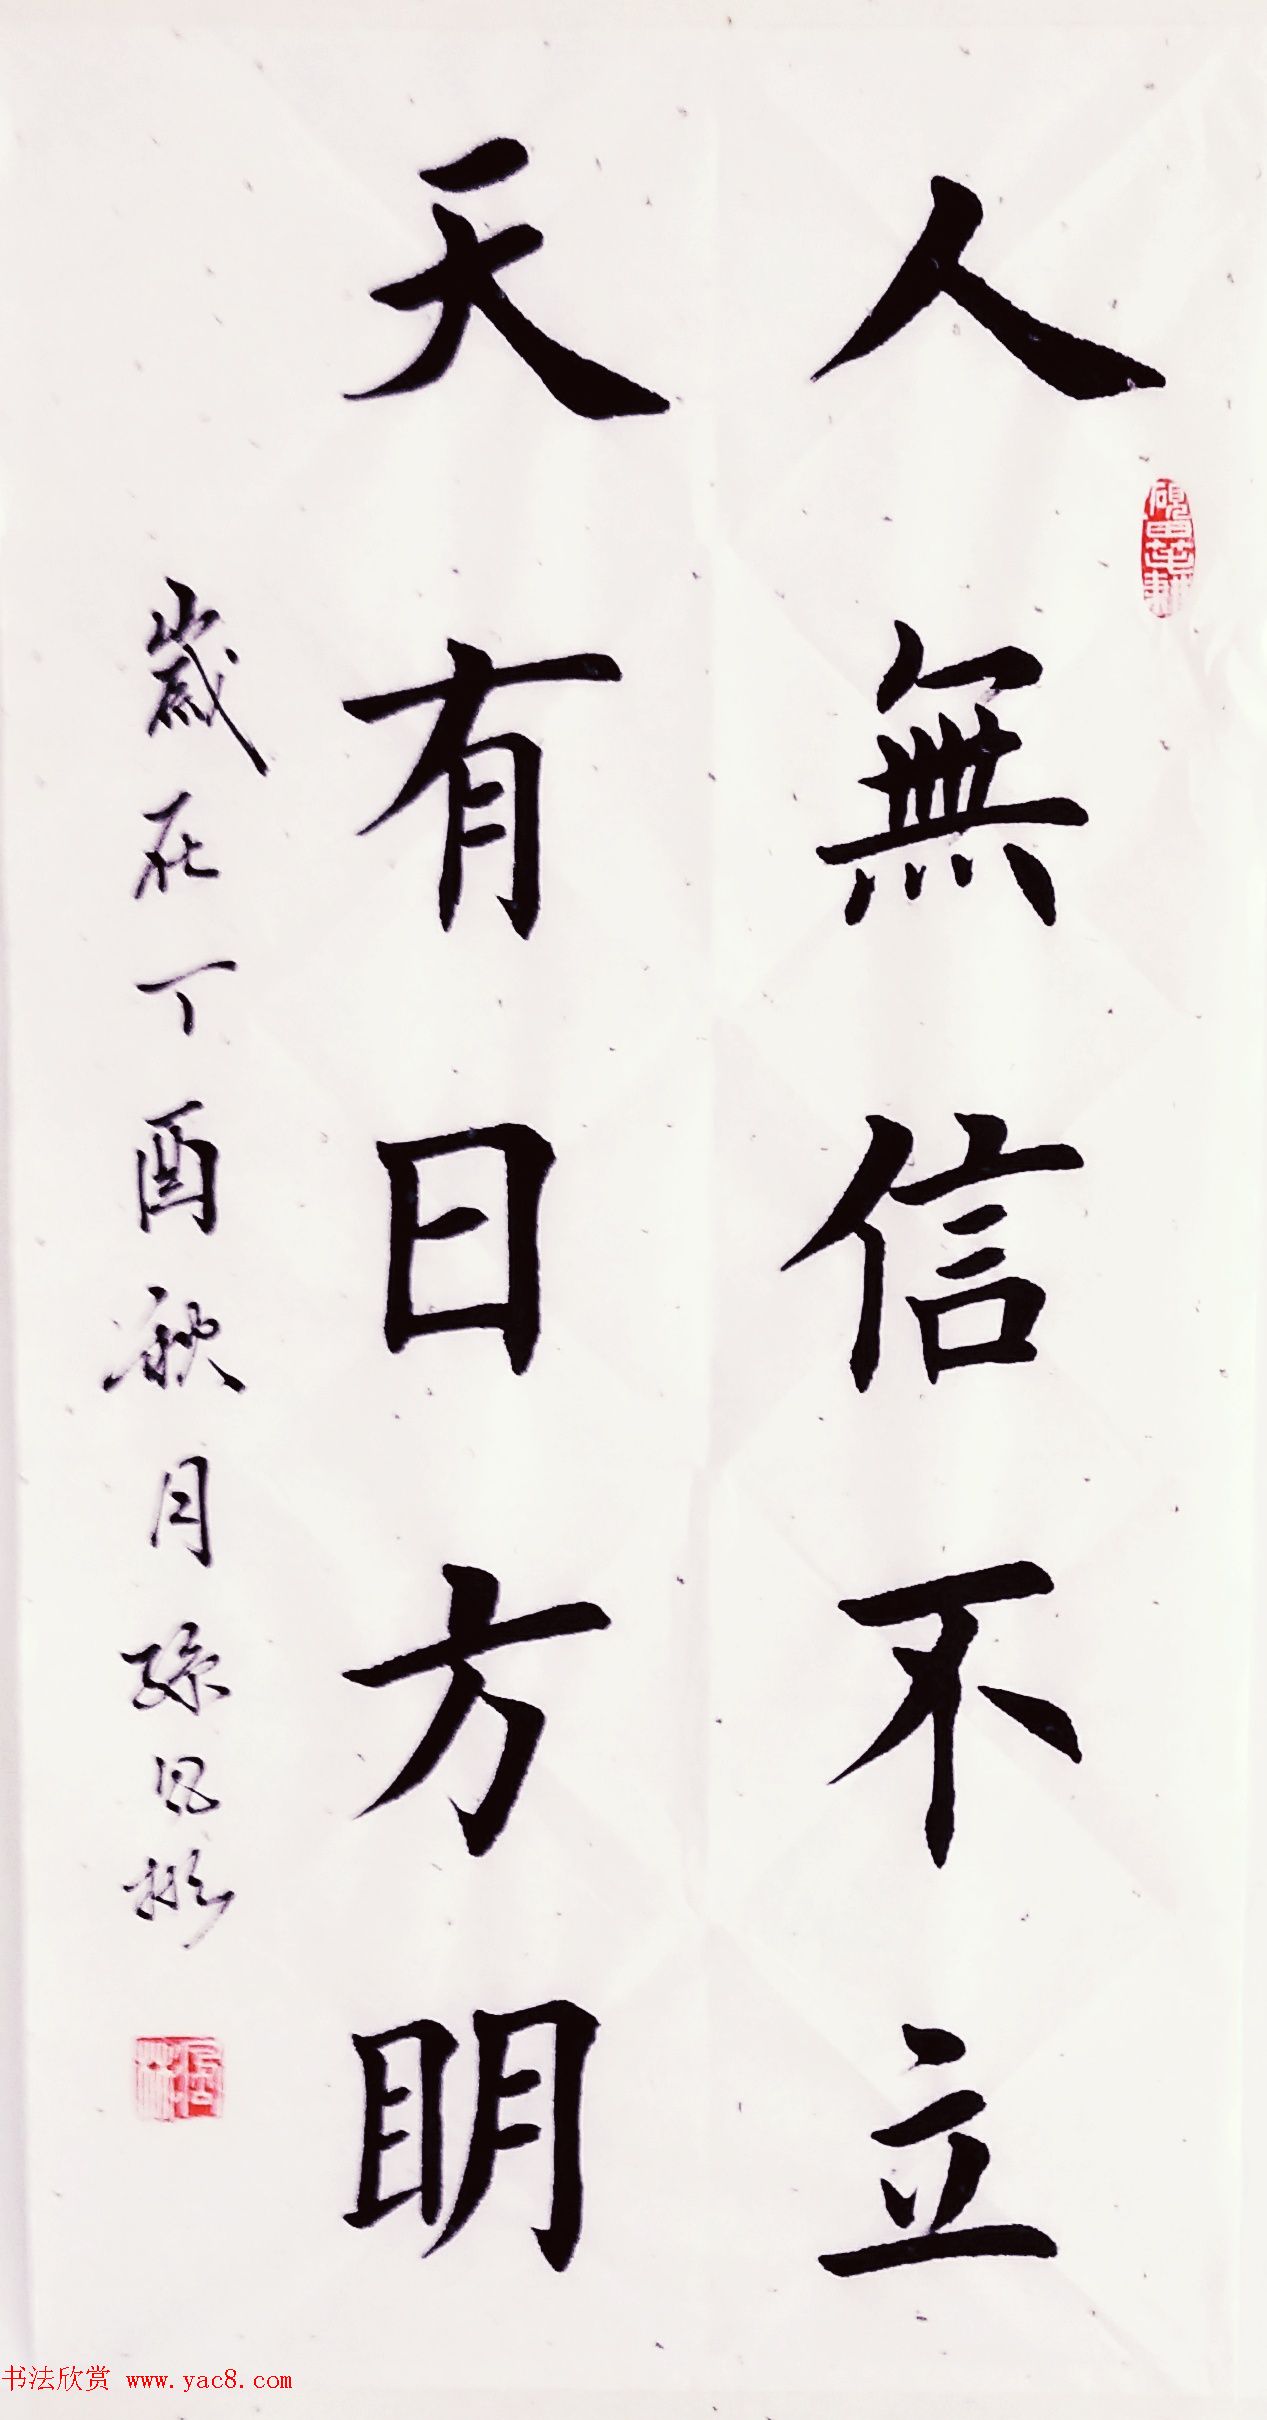 人無信不立
天有日方明
歲在丁酉秋月孫
书法欣赏 www.yac8.com